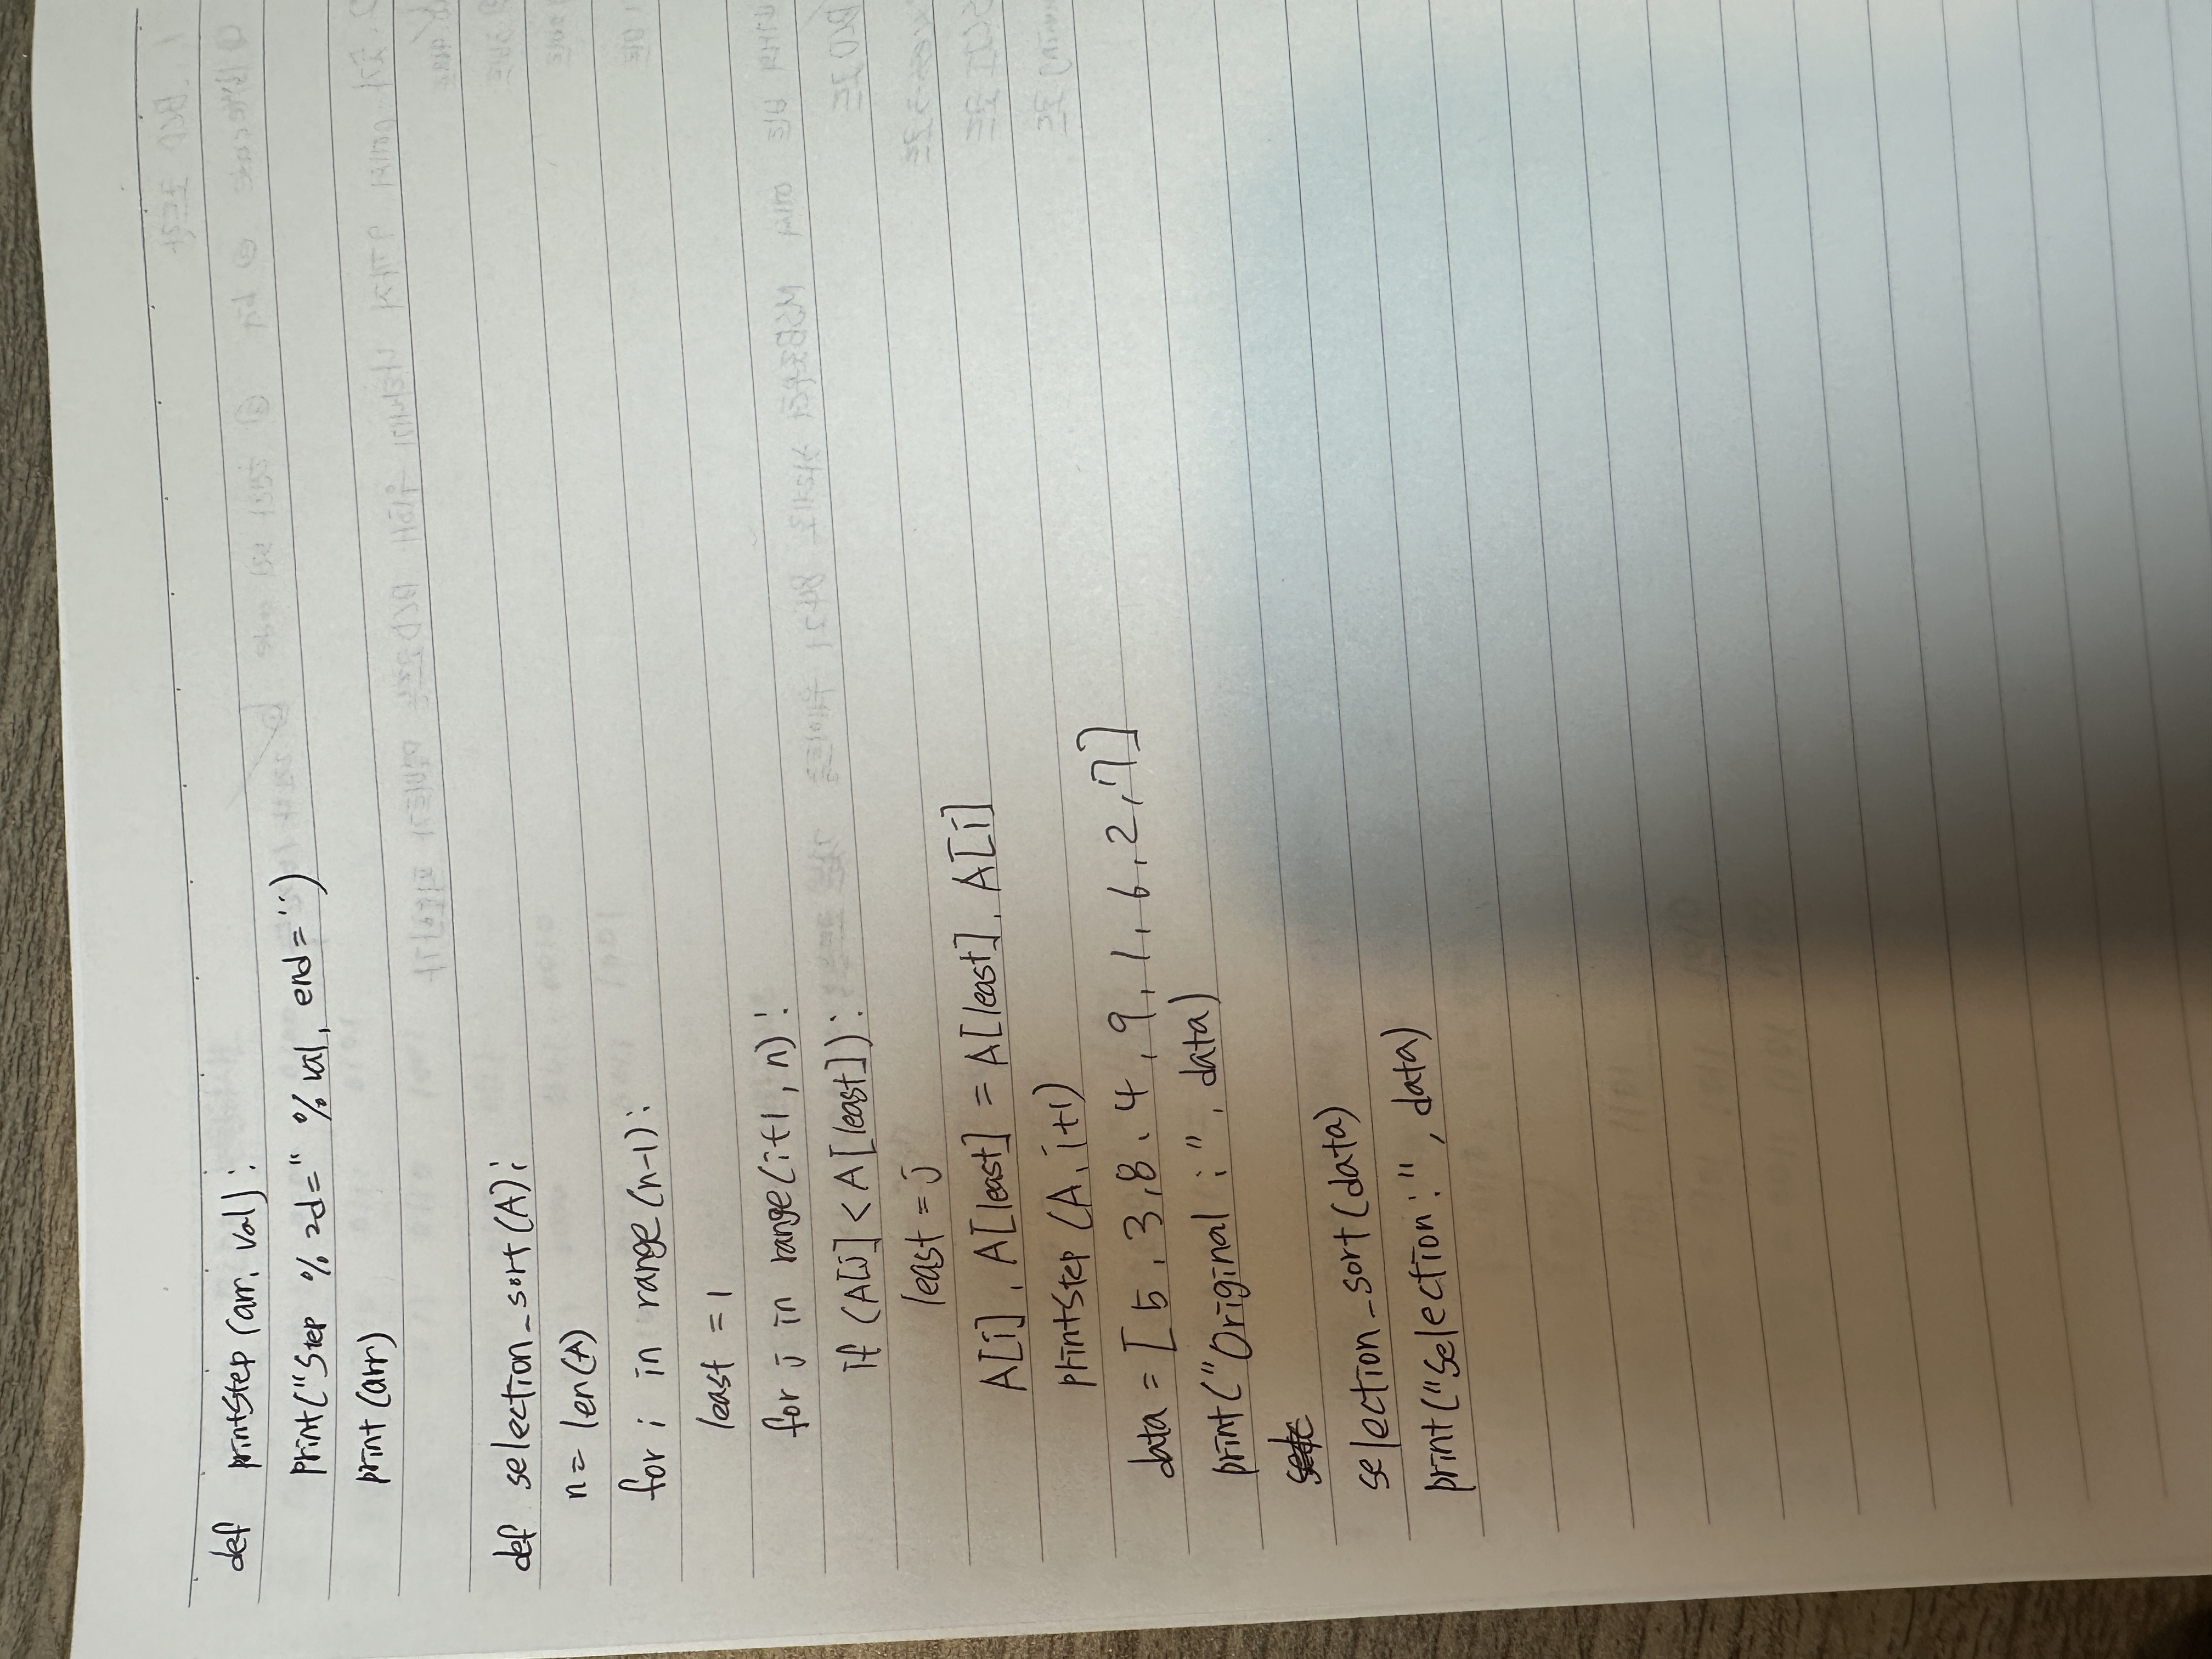 def printStep (arr, val):
print("Step % 2d=" % val, end='')
print (arr)
def selection_sort (A):
n = len(A)
for i in range (n-1):
least = 1
for j in range (i+1, n):
if (A[j] < A[least]):
least = j
A[i], A[least] = A[least], A[i]
printStep (A, i+1)
data = [5, 3, 8, 4, 9, 1, 6, 2, 7]
print("Original :", data)
selection_sort (data)
print("Selection:", data)